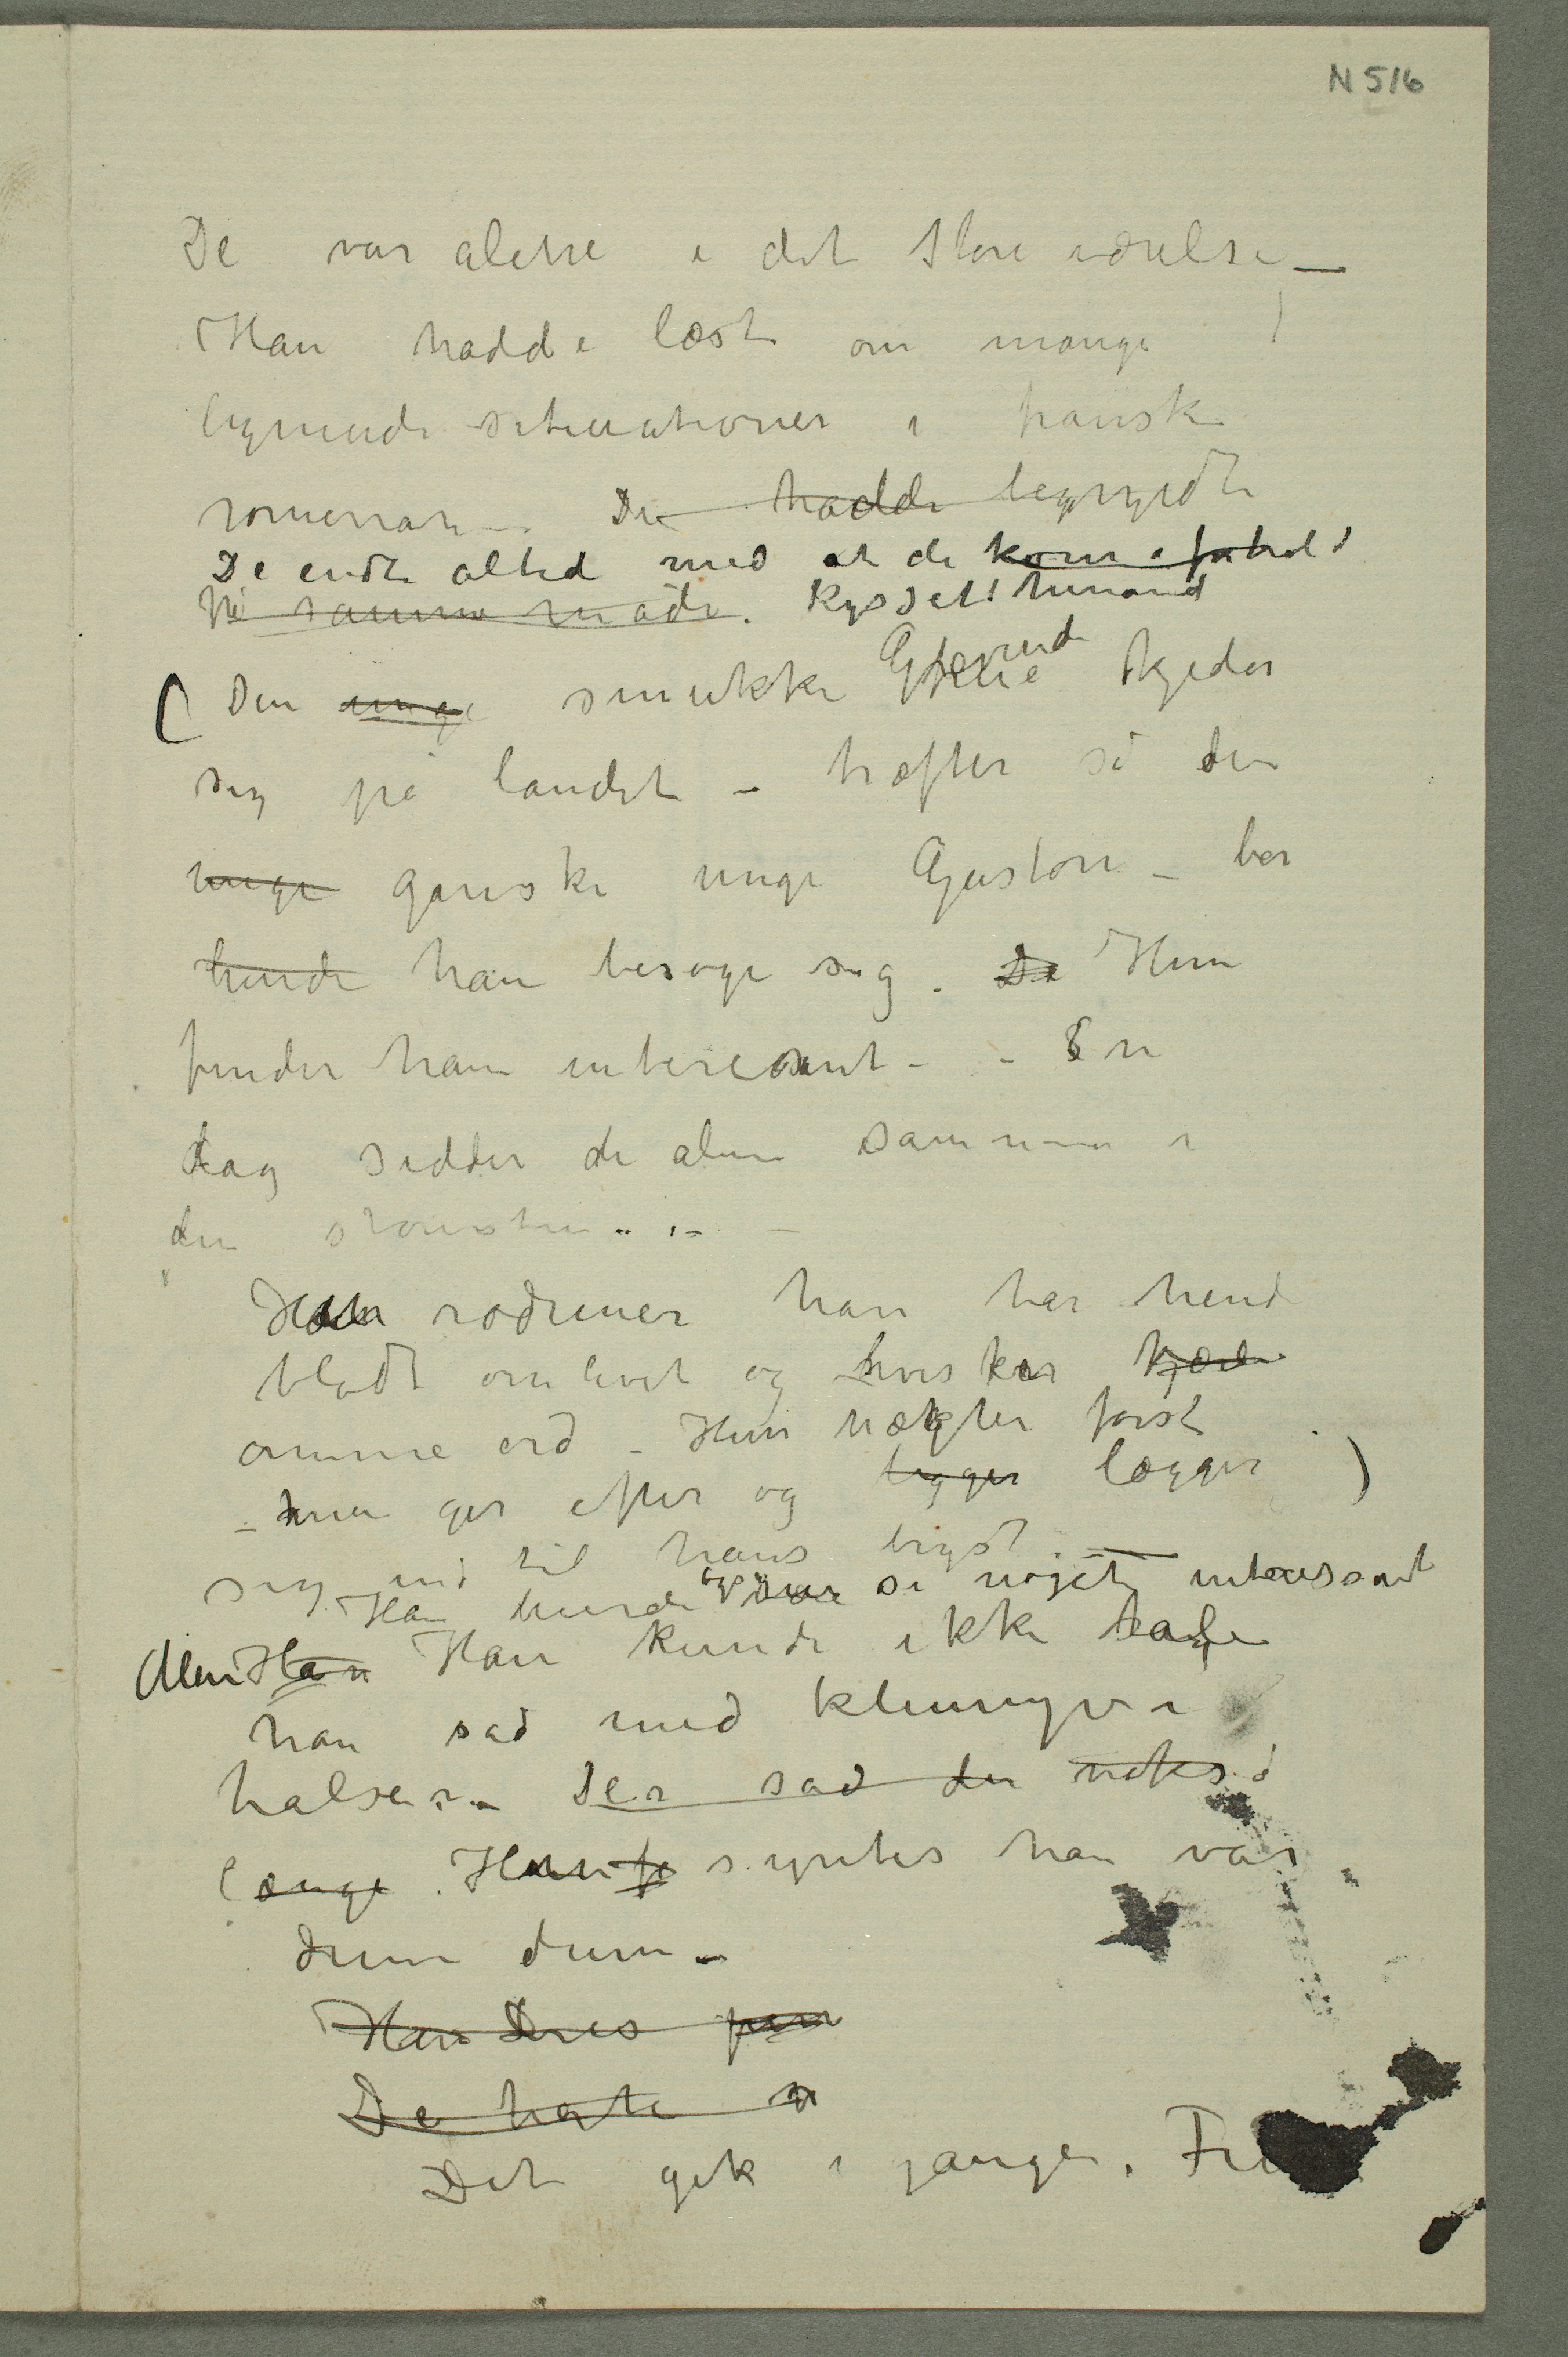 N 516
De var alene i det store værelse –
Han hadde læst om mange
lignende situationer i franske
romerran – De hadde begyndt
De endte altid med at de kom i forhold
På samme måde. kyssett hinand
(Den unge smukke Grevinde kjeder
sig på landet – træffer så den
unge ganske unge Gaston – ber
hende han besøge sig. De Hun
finder ham interesant – – En
dag sidder de alene sammen i
den 
Han rødmer han tar hend
blødt om livet og hvisker
ømme ord – Hun nægter først
– men ger efter og ligger lægger )
sig ind til hans bryst. –
Han burde også si noget interessant
Men Han Han kunde ikke tale
han sad med klumper i
halsen – Der sad de nokså
længe. Hun f syntes han var
dum dum –
Han
De hørte n
Det gik i gangen. Fru